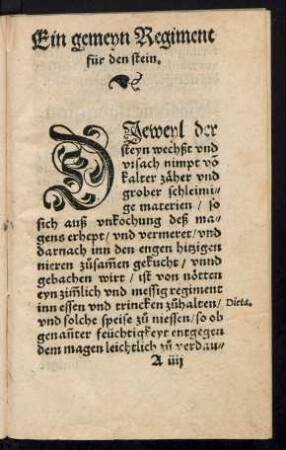 Ein gemeyn Regiment
für den stein.
DIeweyl der
steyn wechßt vnd
vrsach nimpt võ
kalter zäher vnd
grober schleimi-
ge materien / so
sich auß vnkochung deß ma-
gens erhept / vnd vermeret / vnd
darnach inn den engen hitzigen
nieren zůsam̃en gekucht / vnnd
gebachen wirt / ist von nötten
eyn zim̃lich vnd messig regiment
inn essen vnd trincken zůhalten / Dieta.
vnd solche speise zů niessen / so ob
genañter feüchtigkeyt entgegen
dem magen leichtlich zů verdau-
A iiij